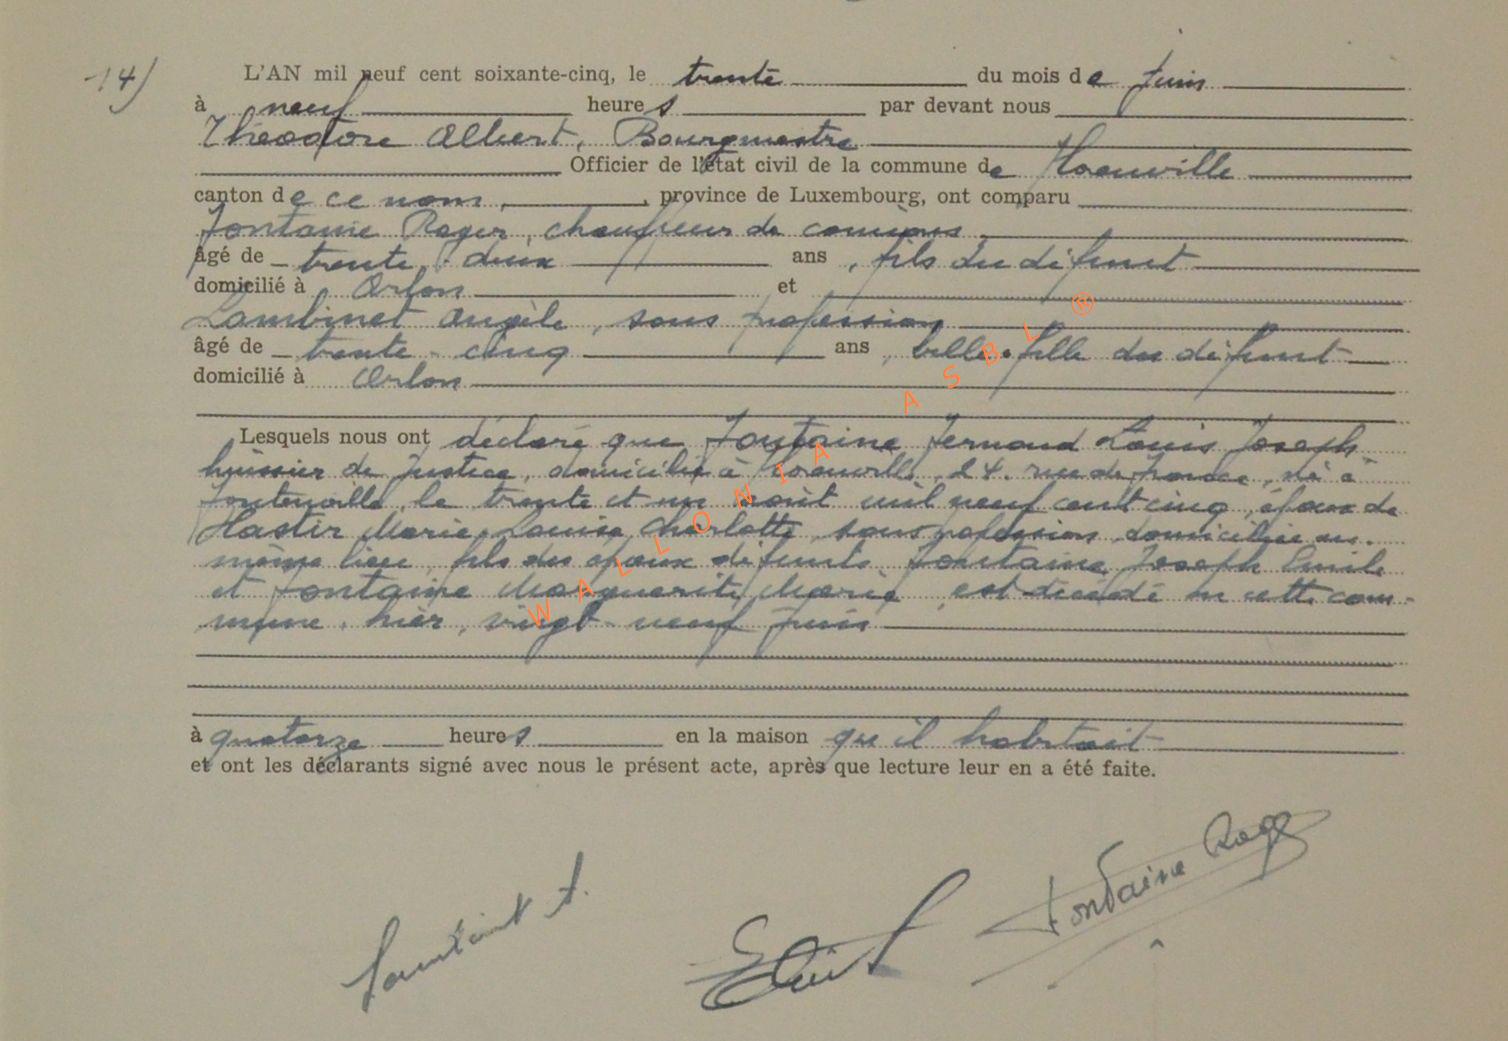 14)
L'AN mil neuf cent soixante-cinq, le trente du mois de Juin
à neuf heures par devant nous
Théodore Albert, Bourgmestre
Officier de l'état civil de la commune de
canton de ce nom, province de Luxembourg, ont comparu
Fontaine Roger, chauffeur de camions,
âgé de trente-deux ans, fils du défunt
domicilié à Arlon et
Lambinet Angèle, sans profession
âgé de trente-cinq ans, belle-fille du défunt
domicilié à Arlon
Lesquels nous ont déclaré que Fontaine Fernand Louis Joseph
huissier de Justice, domicilié à 24, rue de, né à
le trente et un août mil neuf cent cinq, époux de
Hastir Marie Louise Charlotte, sans profession domiciliée au
même lieu, fils des époux défunts Fontaine Joseph Emile
et Fontaine Marguerite Marie, est décédé en cette com-
mune, hier, vingt-neuf juin
à quatorze heures en la maison qu'il habitait
et ont les déclarants signé avec nous le présent acte, après que lecture leur en a été faite.
Lambinet A.
Fontaine Roger
WALLONIA ASBL ®